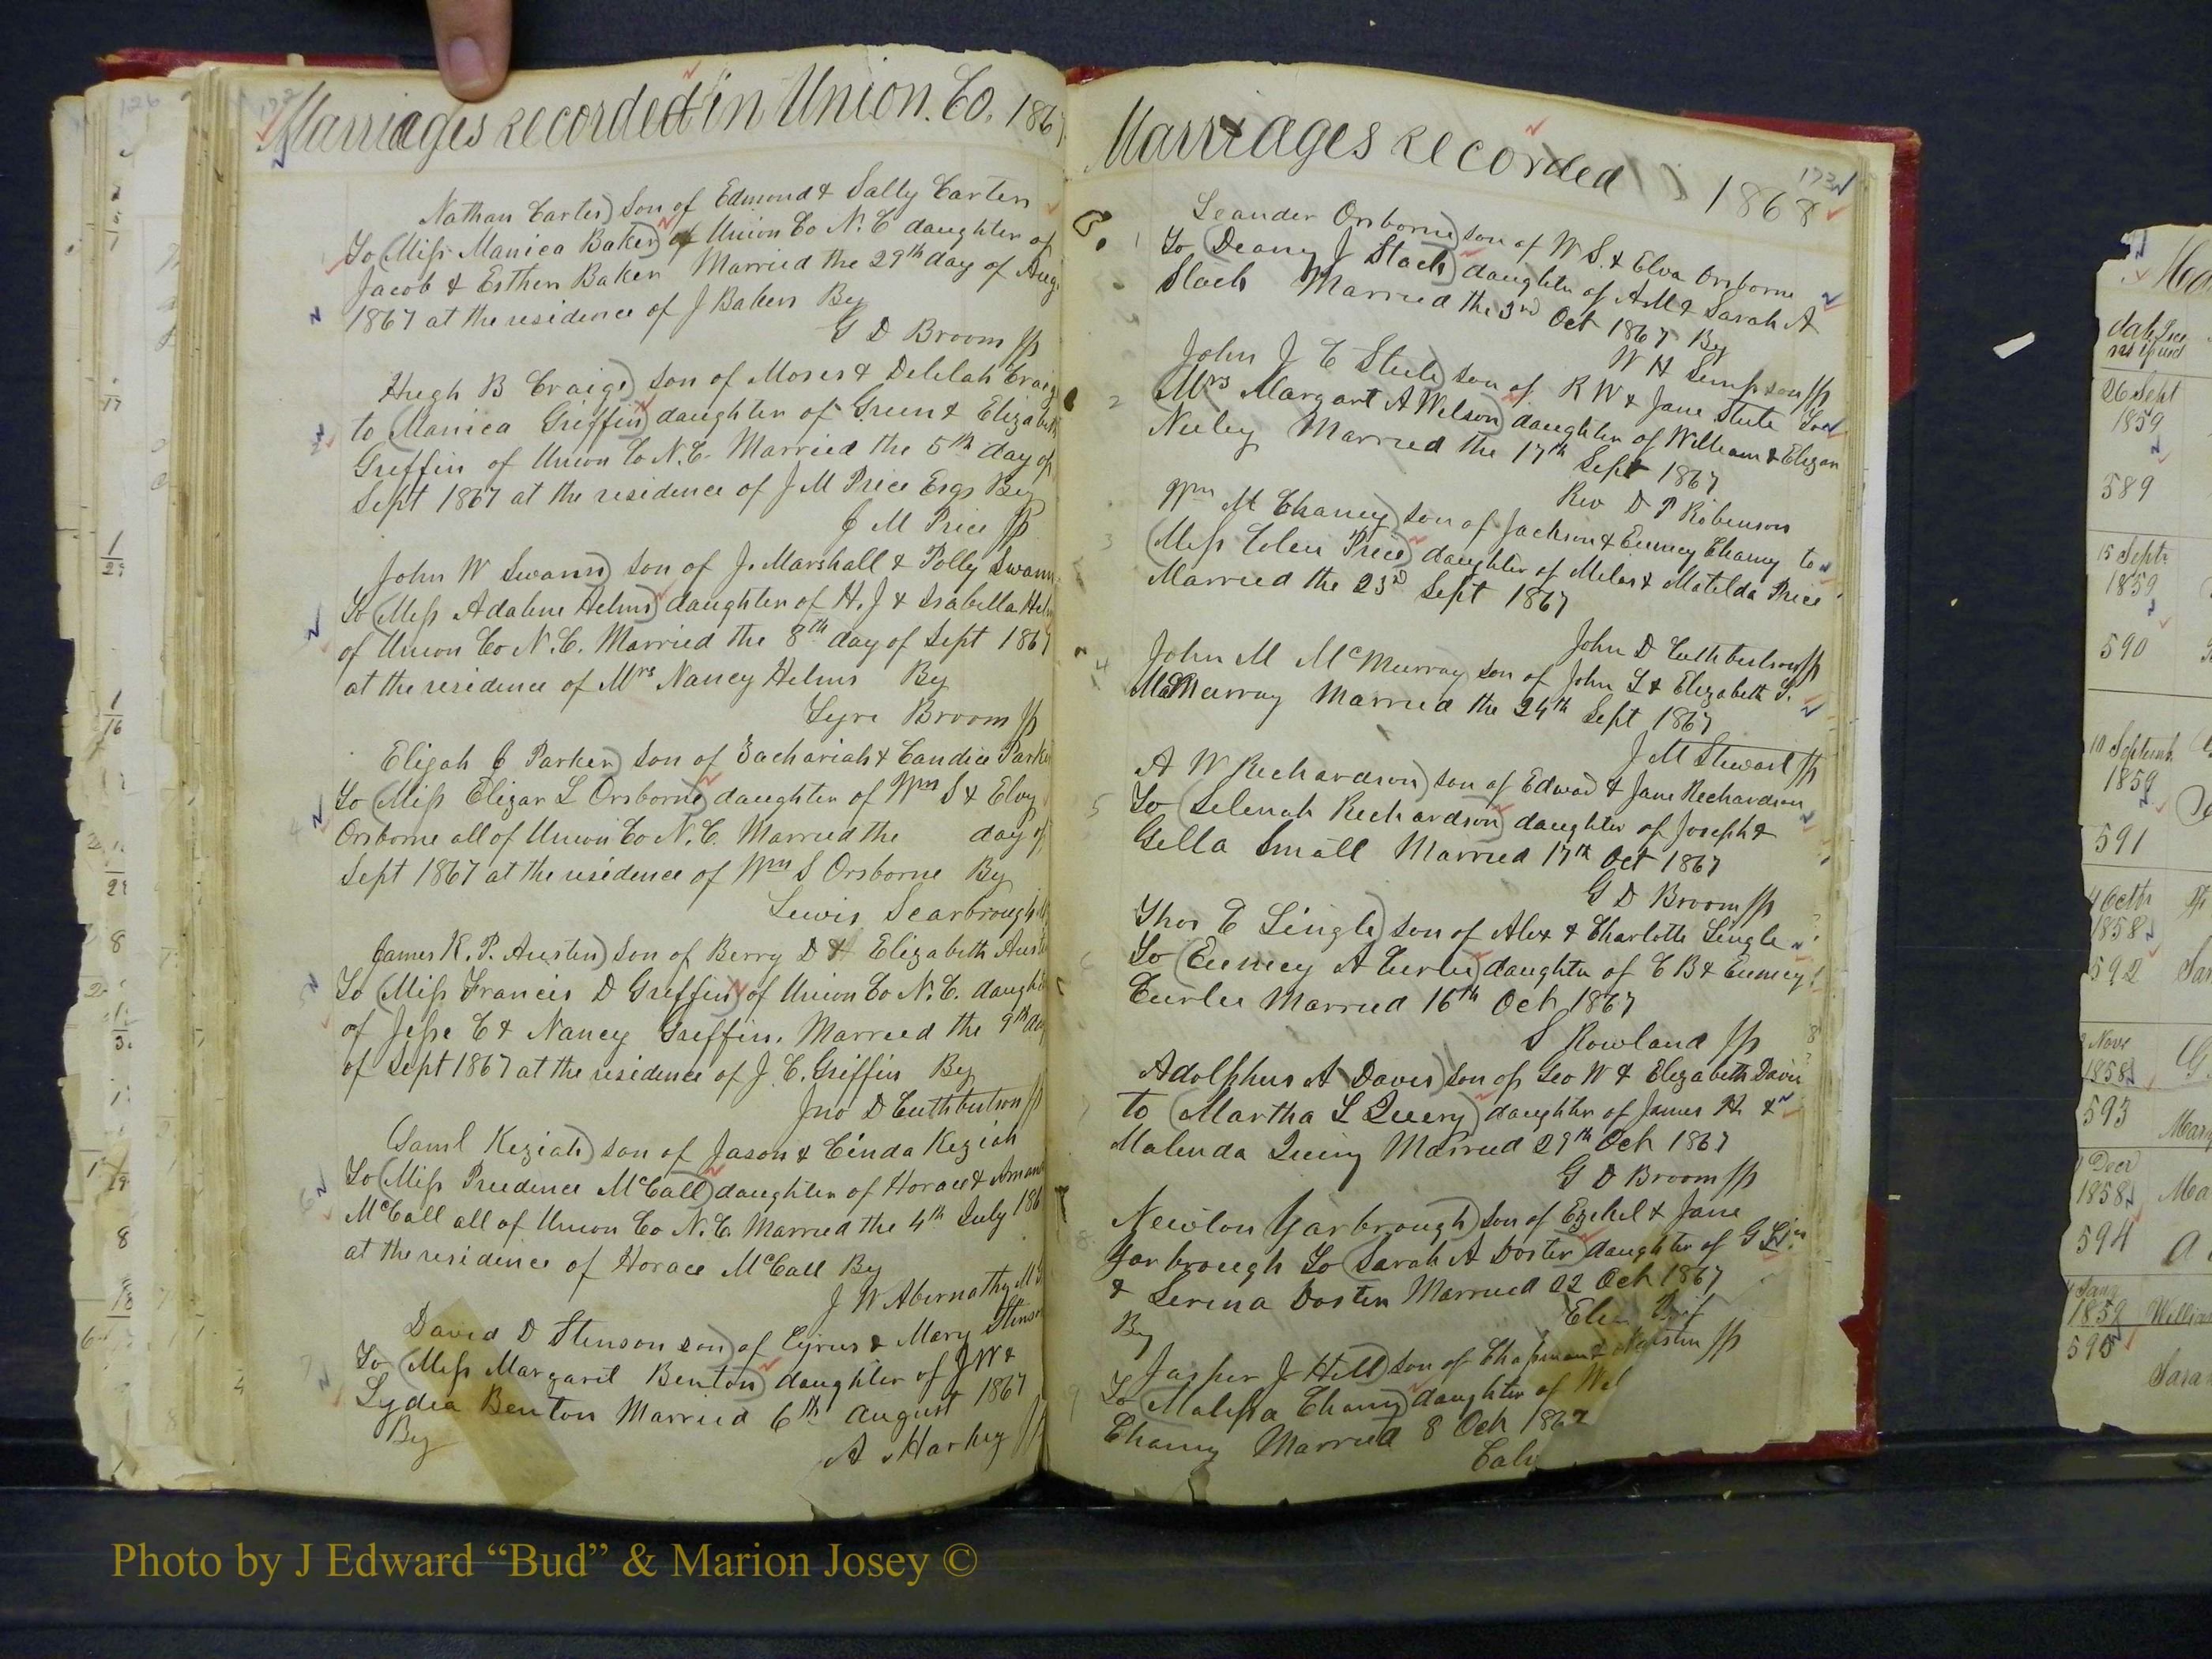 172
Marriages recorded in Union. Co. 1867
Nathan Carter) Son of Edmond & Sally Carter
To (Miss Manica Baker) of Union Co N. C daughter of
Jacob & Esther Baker Married the 29th day of Aug
1867 at the residence of J Bakers By
G D Broom JP
Hugh B Craige) son of Moses & Delilah Craig
to (Manica Griffin) daughter of Green & Elizabeth
Griffin of Union Co N.C. Married the 5th day of
Sept 1867 at the residence of J M Price Esqr By
J M Price JP
John W Swann) son of J. Marshall & Polly Swann
To (Miss Adaline Helms) daughter of H. J & Isabella Helms
of Union Co N.C. Married the 8th day of Sept 1867
at the residence of Mrs Nancy Helms By
Broom JP
Elijah C Parker) son of Zachariah & Candice Parker
To (Miss Elizar L Orsborne) daughter of Wm S & Elvy
Orsborne all of Union Co N.C. Married the day of
Sept 1867 at the residence of Wm S Orsborne By
Lewis Scarbrough
James K. P. Austin) Son of Berry D & Elizabeth Austin
To (Miss Francis D Griffin) of Union Co N.C. daughter
of Jesse C & Nancy Griffin. Married the 9th day
of Sept 1867 at the residence of J. C. Griffin By
Jno D Cuthbertson JP
Saml Keziah) son of Jason & Cinda Keziah
To (Miss Prudence McCall) daughter of Horace & Amand
McCall all of Union Co N.C. Married the 4th July 186
at the residence of Horace McCall By
J W Abernathy M
David D Stenson son) of Cyrus & Mary Stenson
To (Miss Margaret Benton) daughter of J W &
Lydia Benton Married 6th August 1867
By
A Harkey JP
173
Marriages Recorded 1868
1 Leander Orsborne) son of W S. & Elva Orsborne
To (Deany J Stack) daughter of A M & Sarah A
Stack Married the 3rd Oct 1867 By
W H Simpson JP
2 John J C Steele) son of R W & Jane Stute To
Mrs Margart A Wilson) daughter of William & Elizar
Neeley Married the 17th Sept 1867
Rev D P Robinson
3 Wm M Chaney) son of Jackson & Emmey Chaney to
(Miss Price) daughter of Milas & Matilda Price
Married the 23d Sept 1867
John D Cuthbertson JP
4 John M McMurray son of John L & Elizabeth S.
McMurray Married the 24th Sept 1867
J M Stewart JP
5 A W Richardson) son of Edward & Jane Richardson
To (Selenah Richardson) daughter of Joseph &
Gella Small Married 17th Oct 1867
G D Broom JP
6 Thos E Lingle) son of Alex & Charlotte Lingle
To (Emmey A Curlee) daughter of C B & Emmey
Curlee Married 16th Oct 1867
S Rowland JP
7 Adolphus A Davis) son of Geo W & Elizabeth Davis
to (Martha L Query) daughter of James H &
Malinda Query Married 29th Oct 1867
G D Broom JP
8 Newton Yarbrough) son of Ezekel & Jane
Yarbrough To (Sarah A Doster) daughter of G
& Serena Doster Married 22 Oct 1867
By
JP
9 Jasper J Hill) son of Chapman &
To (Malissa Chaney) daughter of
Chaney Married 8 Oct 1867
26 Sept
1859
589
15 Septr
1859
590
10 Septemb
1859
591
4 Octr
1858
592
Novr
1858
593
Decr
1858
594
1859
595
Photo by J Edward “Bud” & Marion Josey ©